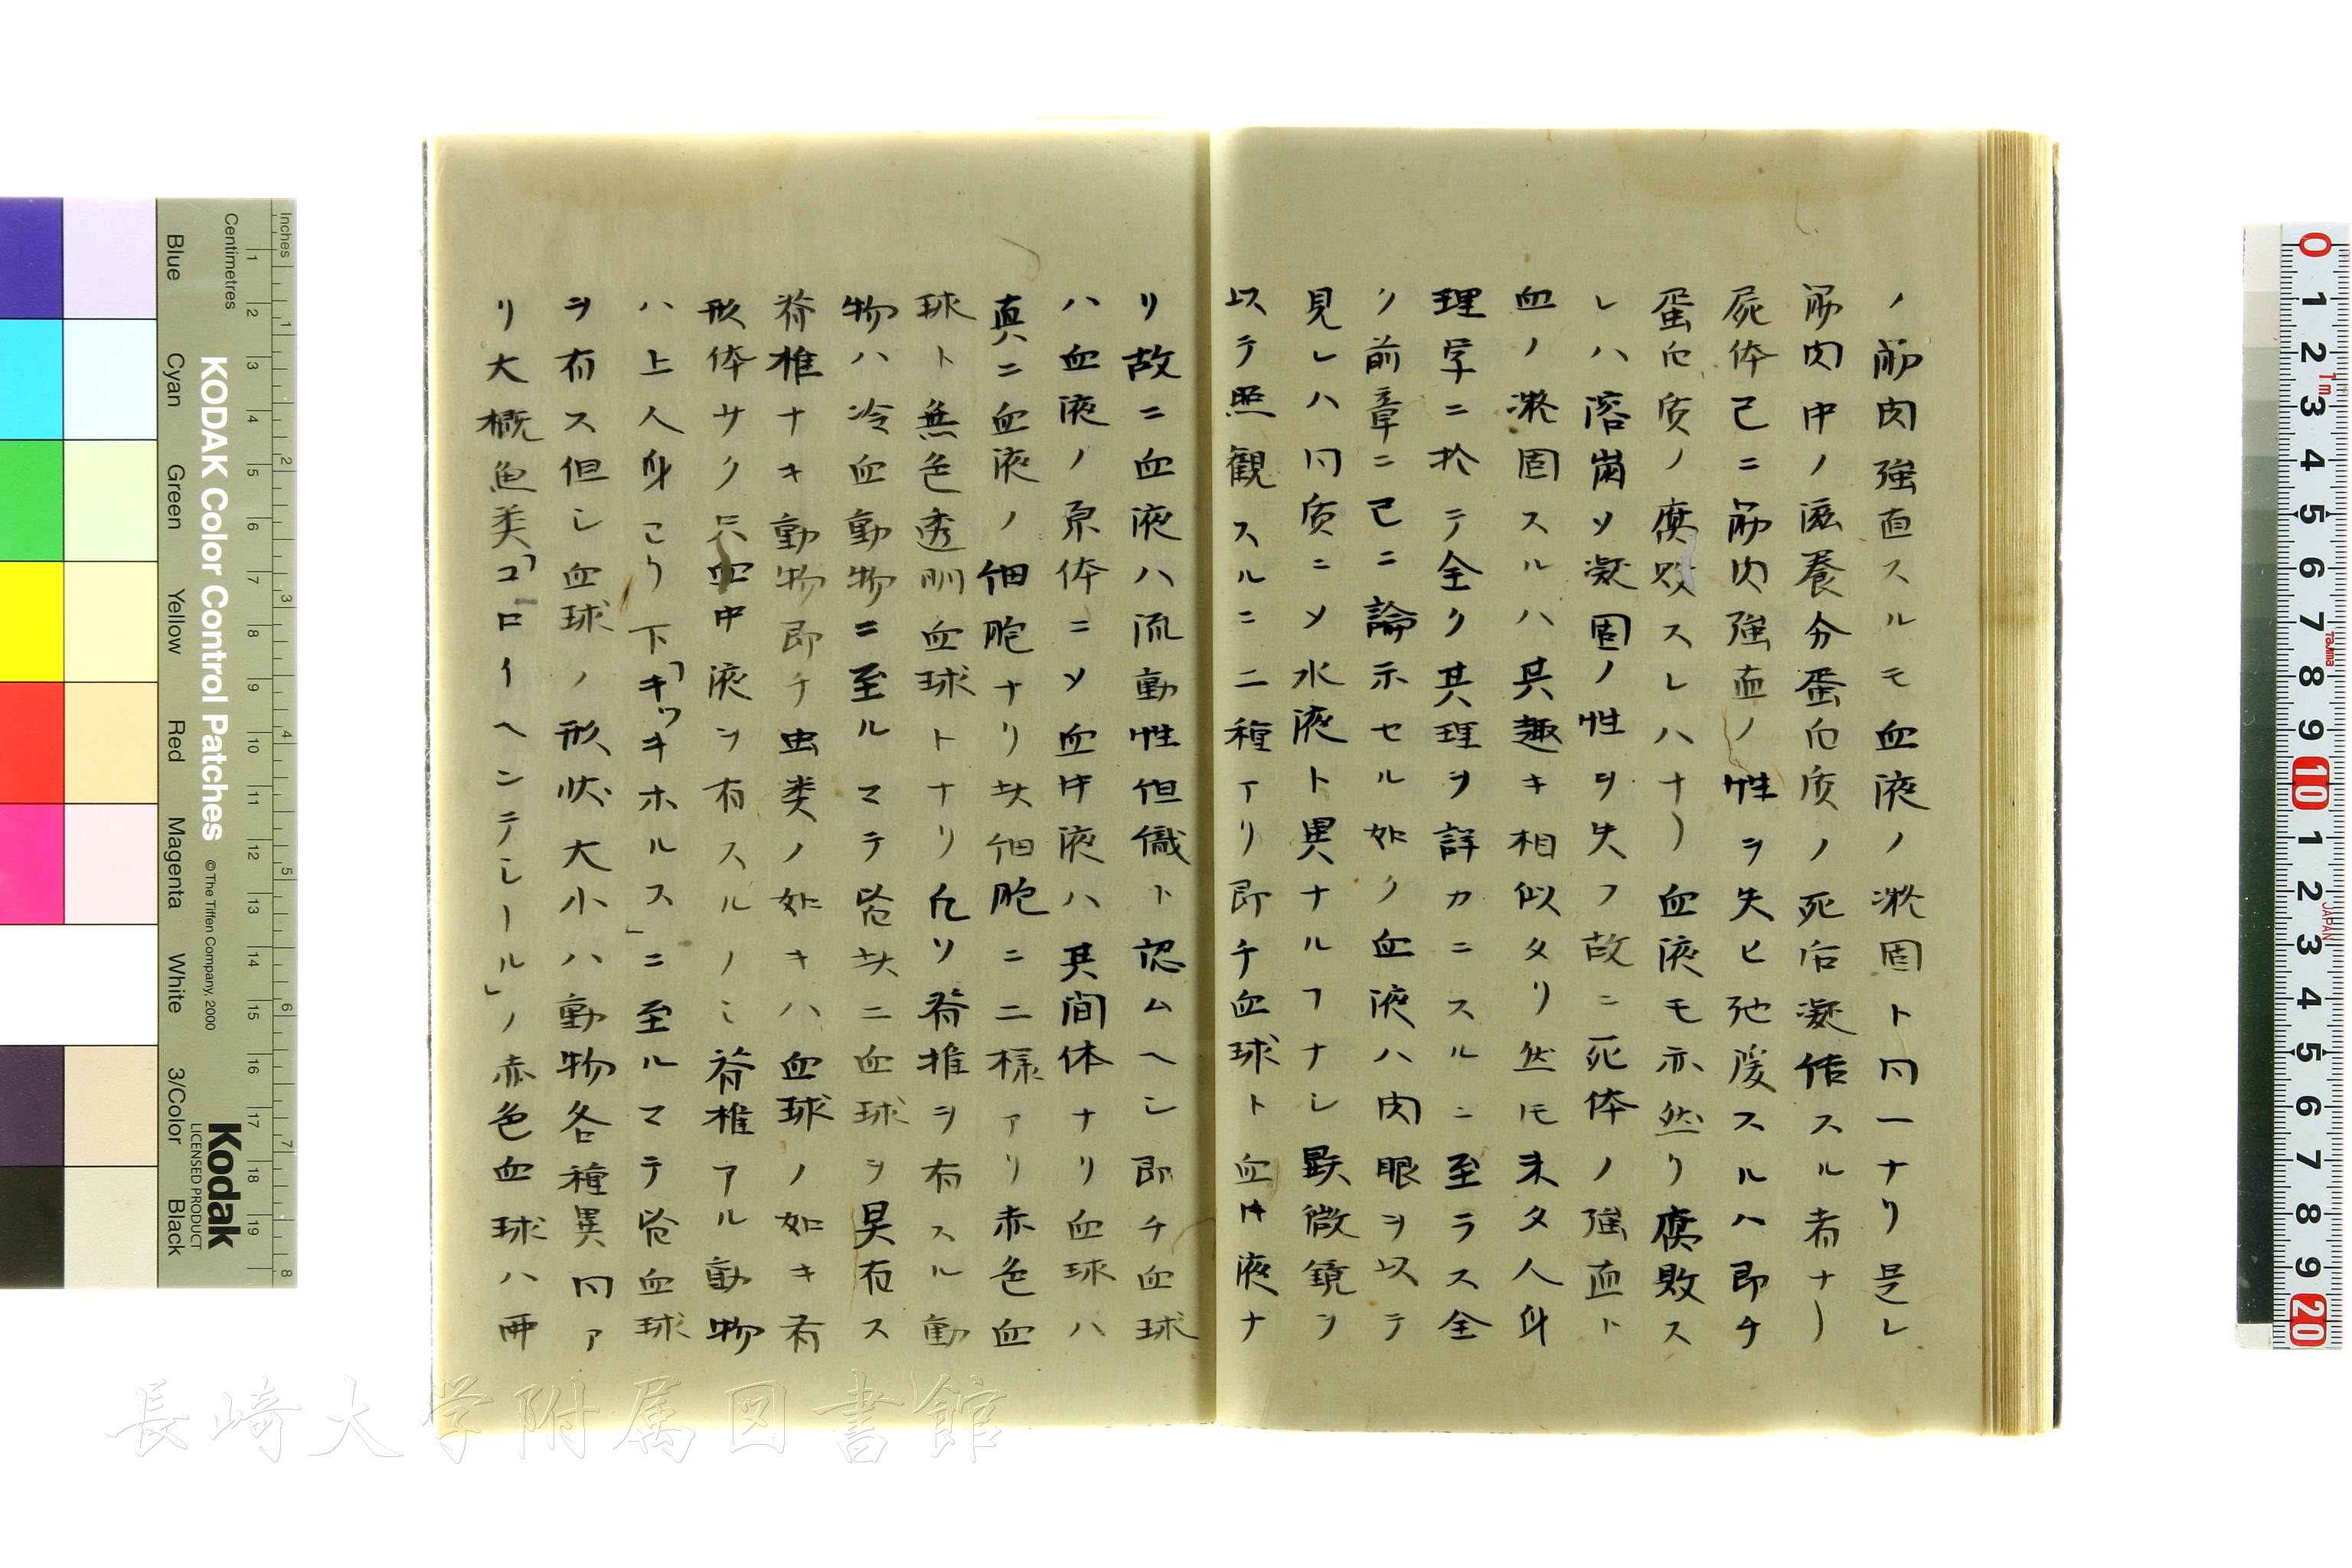 ノ筋肉強直スルモ血液ノ凝固ト同一ナリ是レ
筋肉中ノ滋養分蛋白质ノ死后凝結スル者ナリ
死体已ニ筋肉強直ノ性ヲ失ヒ弛緩スルハ即チ
蛋白质ノ腐敗スレハナリ血液モ亦然リ腐敗ス
レハ溶崩ソ凝固ノ性ヲ失フ故ニ死体ノ強直ト
血ノ凝固スルハ其趣キ相似タリ然モ未タ人身
理学ニ於テ全ク其理ヲ詳カニスルニ至ラス全
ク前章ニ已ニ論示セル如ク血液ハ肉眼ヲ以テ
見レハ同质ニソ水液ト異ナルフナシ顕微鏡ヲ
以テ照観スルニ二種アリ即チ血球ト血中液ナ
リ故ニ血液ハ流動性但儀ト認ムヘシ即チ血球
ハ血液ノ原体ニソ血中液ハ其間体ナリ血球ハ
真ニ血液ノ細胞ナリ此細胞ニ二様アリ赤色血
球ト無色透明血球トナリ凡ソ脊椎ヲ有スル動
物ハ冷血動物ニ至ルマテ皆此二血球ヲ具有ス
脊椎ナキ動物即チ虫类ノ如キハ血球ノ如キ有
形体サク只血中液ヲ有スルノミ脊椎アル動物
ハ上人身ヨリ下「キッキホルス」ニ至ルマテ皆血球
ヲ有ス但シ血球ノ形状大小ハ動物各種異同ア
リ大概魚类「コローヘンテレール」ノ赤色血球ハ両
KODAK Color Control Patches
©The Tiffen Company, 2000
Kodak
LICENSED PRODUCT
Inches
Centimetres
Blue
Cyan
Green
Yellow
Red
Magenta
White
3/Color
Black
1 2 3 4 5 6 7 8 9 10 11 12 13 14 15 16 17 18 19
1 2 3 4 5 6 7 8
0 1 2 3 4 5 6 7 8 9 10 1 2 3 4 5 6 7 8 9 20
1m
Tajima
JAPAN
長崎大学附属図書館